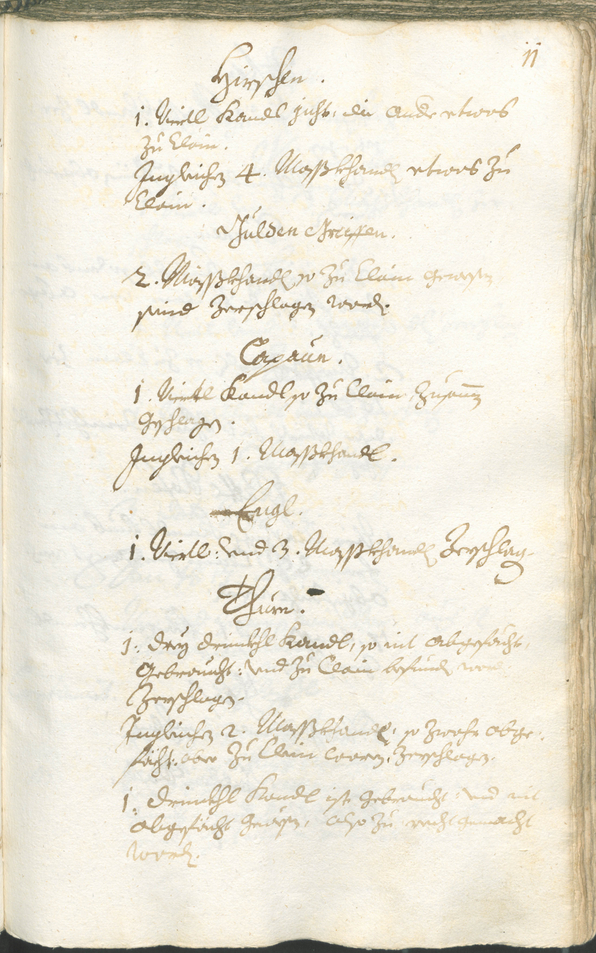 11
Hirschen.
1. Viertl Kandl
zu Clain.
Ingleichen 4. Masskhandl etwas zu
Clain.
Gulden Greiffen.
2. Masskhandl so zu Clain gewesen
seind Zerschlagen worden.
Capaun.
1. Viertl Kandl so zu Clain Zusamen
geschlagen.
Ingleichen 1. Masskhandl.
Engl.
1. Viertl: vnd 3. Masskhandl Zerschlag-
Thurn.
1. drey drinckhl Kandl, so nit abgefächt,
gebraucht: vnd zu Clain befunden
Zerschlagen.
Ingleichen 2. Masskhandl, so zwar abge-
fächt: aber zu Clain waren, Zerschlagen.
1. drinckhl Kandl ist gebraucht: vnd nit
abgefächt gewesen, also zu recht gemacht
worden.